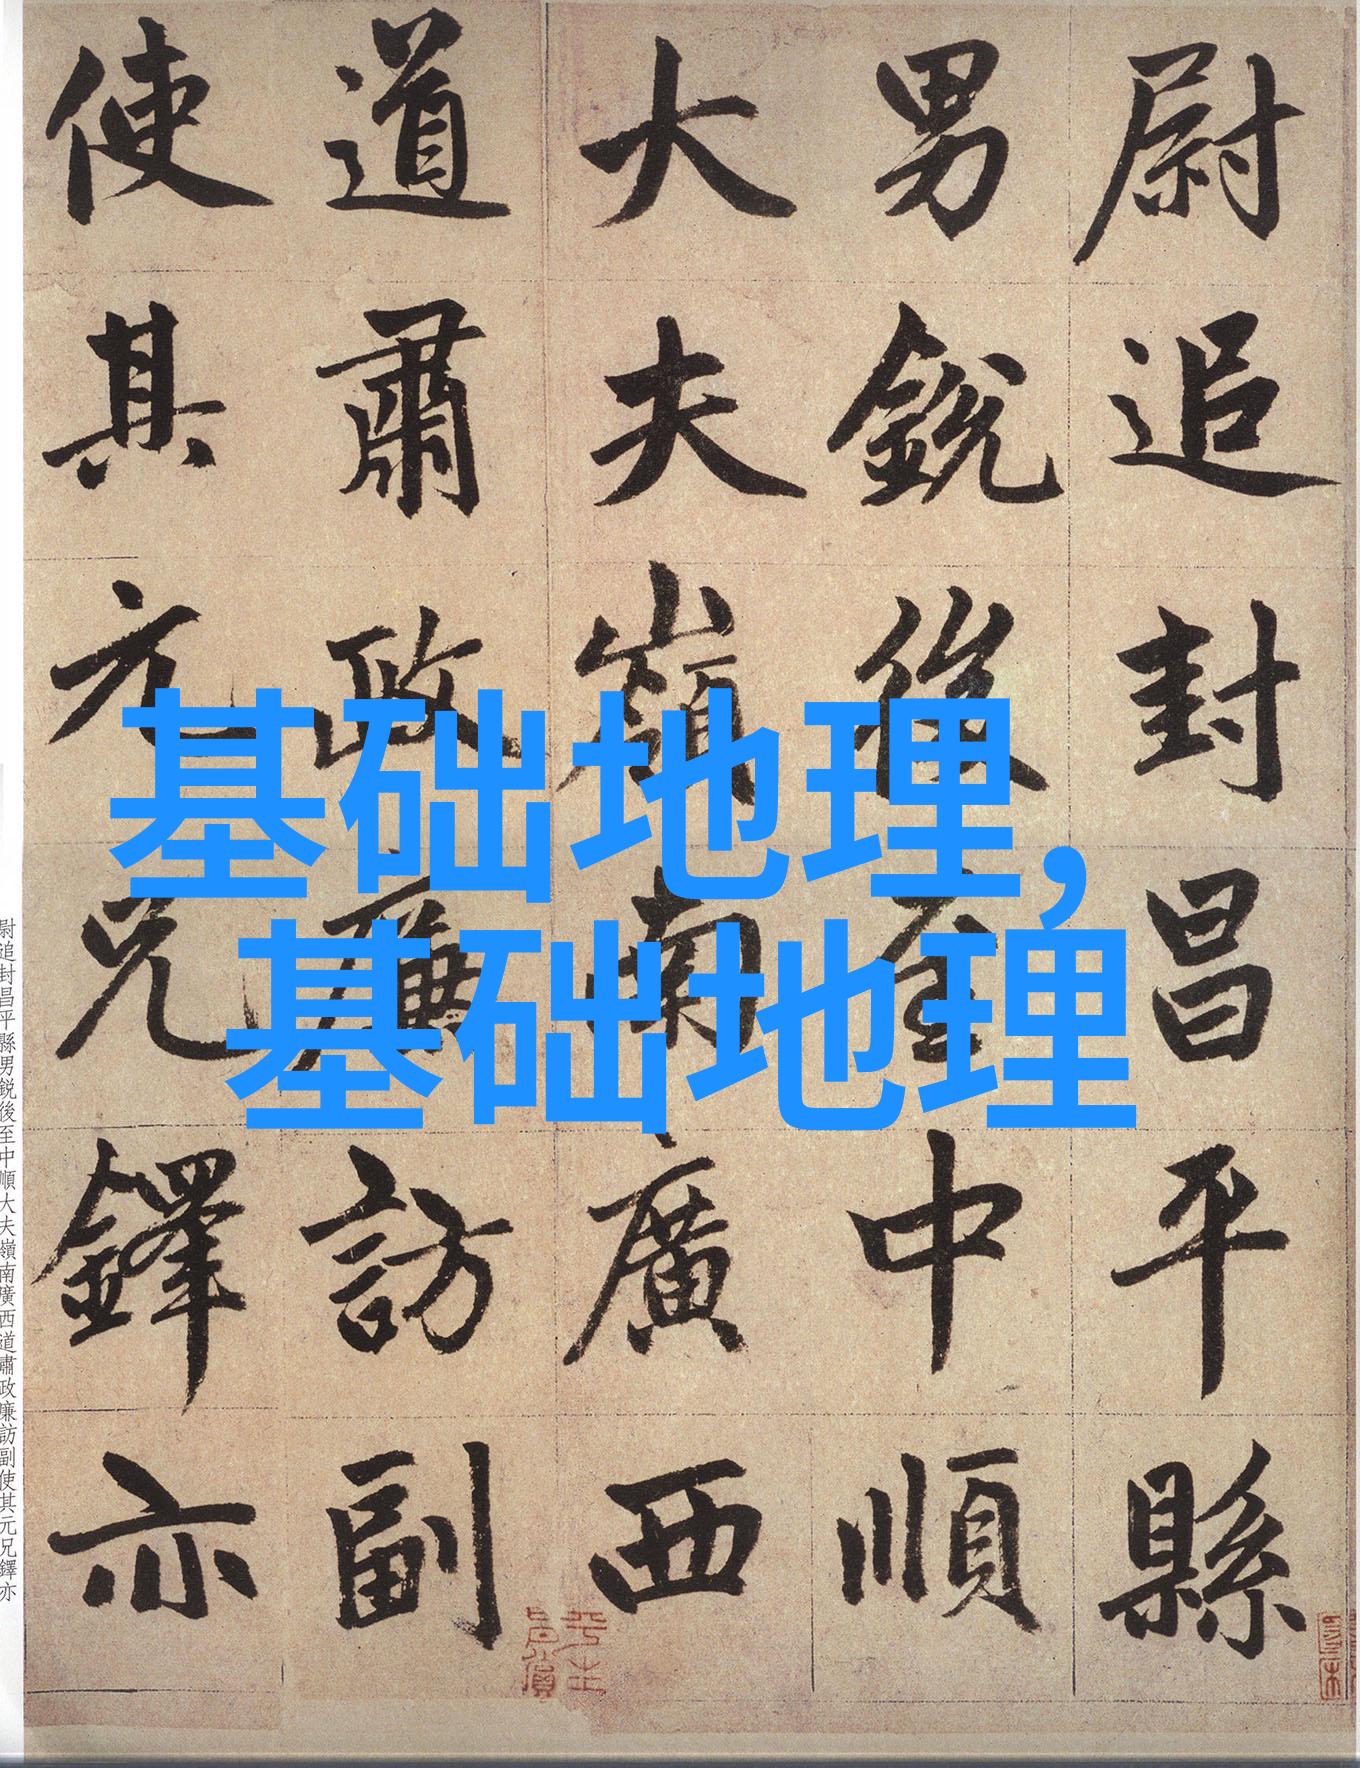 尉追封昌平縣
男銳後至中順
大夫嶺南廣西
道肅政廉訪副
使其元兄鐸亦
基础地理，
基础地理
尉追封昌平縣男銳後至中順大夫嶺南廣西道肅政廉訪副使其元兄鐸亦